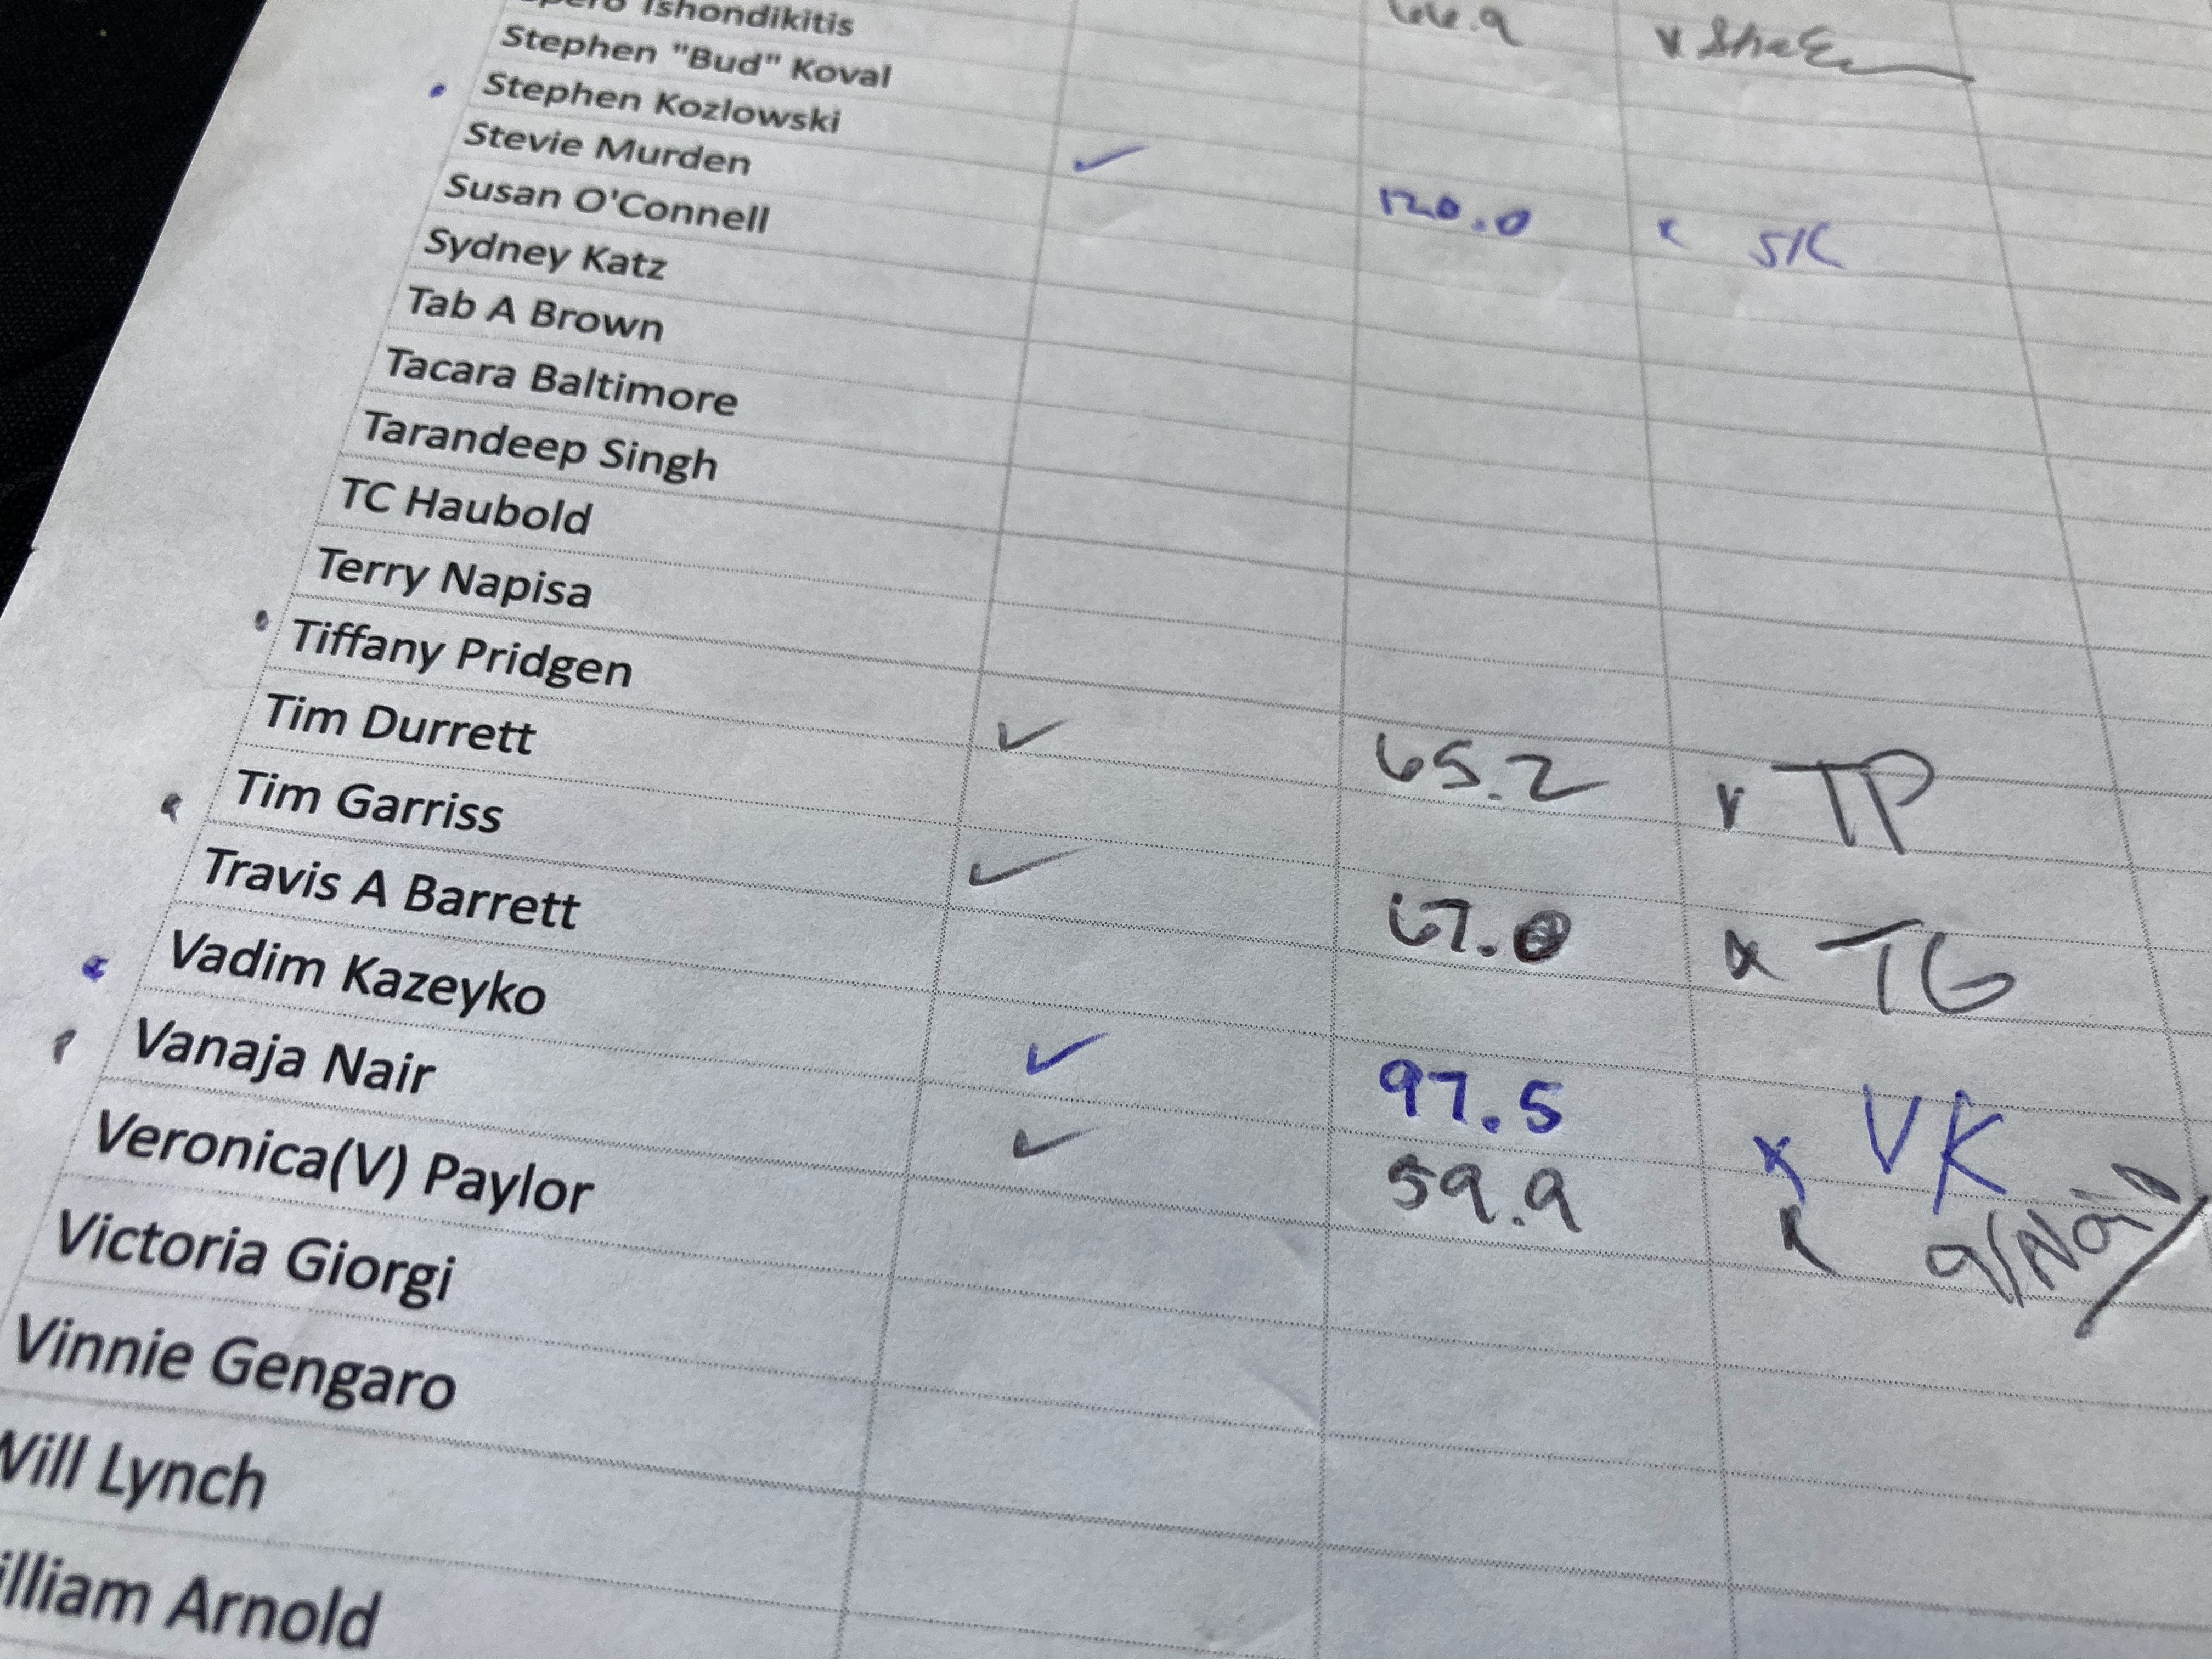 Tshondikitis
Stephen "Bud" Koval
Stephen Kozlowski ✓ 120.0 x SK
Stevie Murden
Susan O'Connell
Sydney Katz
Tab A Brown
Tacara Baltimore
Tarandeep Singh
TC Haubold
Terry Napisa
Tiffany Pridgen ✓ 65.2 x TP
Tim Durrett
Tim Garriss ✓ 67.0 x TG
Travis A Barrett
Vadim Kazeyko ✓ 97.5 x VK
Vanaja Nair ✓ 59.9 x
Veronica(V) Paylor
Victoria Giorgi
Vinnie Gengaro
Will Lynch
illiam Arnold